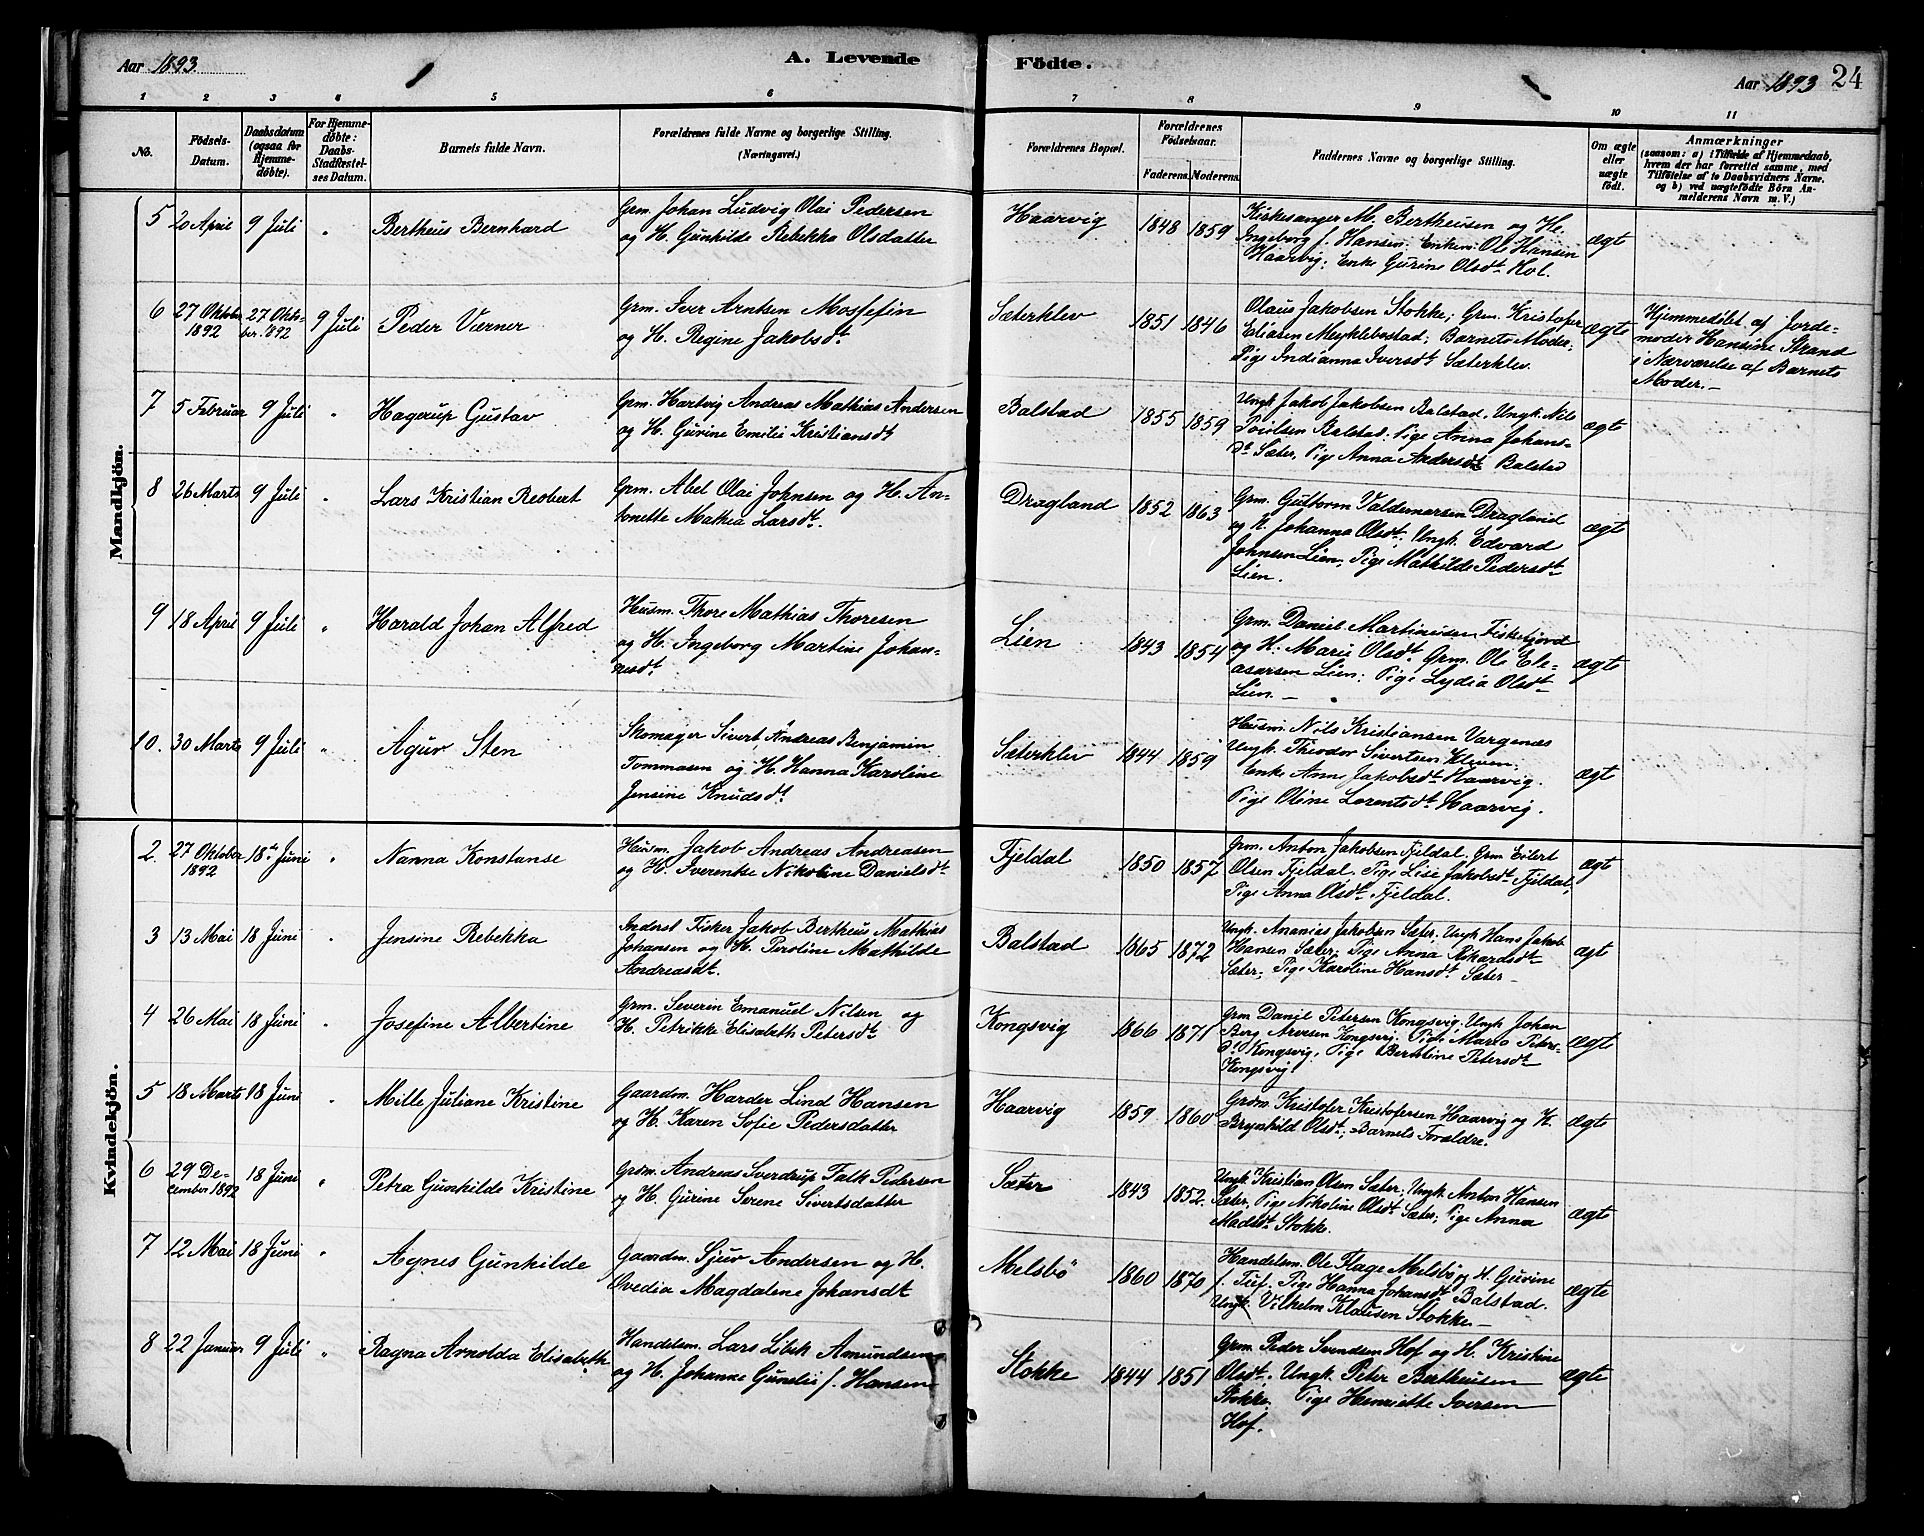 Aar 1893.
A. Levende Födte.
Aar 1893
24
1 2 3 4 5 6 7 8 9 10 11
No.
Födsels-
Datum.
Daabsdatum
(ogsaa for
Hjemme-
döbte).
For Hjemme-
döbte:
Daabs-
Stadfæstel-
ses Datum.
Barnets fulde Navn.
Forældrenes fulde Navne og borgerlige Stilling.
(Næringsvei.)
Forældrenes Bopæl.
Forældrenes
Födselsaar.
Faderens. Moderens.
Faddernes Navne og borgerlige Stilling.
Om ægte
eller
uægte
født.
Anmærkninger
(saasom: a) i Tilfælde af Hjemmedaab,
hvem der har forrettet samme, med
Tilföielse af to Daabsvidners Navne.
og b) ved uægtefödte Börn An-
melderens Navn m. V.)
Mandkjön.
5 20 April 9 Juli " Bertheus Bernhard
Grm. Johan Ludvig Olai Pedersen
og H. Gunhilde Rebekka Olsdatter
Haarvig 1848 1859
Kirkesanger M. Bertheusen og H.
Ingeborg f. Hansen. Enkem. Ole Hansen
Haarvig; Enke Gurine Olsdt. Hol.
ægte
6 27 Oktober
1892
27 Okto-
ber. 1892
9 Juli Peder Værner
Grm. Iver Arntsen Mosfefin
og H. Regine Jakobsdt.
Sæterklev 1851 1846
Olaus Jakobsen Stokke; Grm. Kristofer
Eliasen Meyklebostad; Barnets Moder;
Pige Indianna Iversdt. Sæterklev.
ægte
Hjemmedöbt af Jorde-
moder Hansine Strand
i Nærværelse af Barnets
Moder.-
7 5 Februar 9 Juli " Hagerup Gustav
Grm. Hartvig Andreas Mathias Andersen
og H. Gurine Emilie Kristiansdt
Balstad 1855 1859
Ungk. Jakob Jakobsen Balstad. Ungk. Nils
Poulsen Balstad. Pige Anna Johans-
dt. Sæter, Pige Anna Andersdt. Balstad
ægte
8 26 Marts 9 Juli " Lars Kristian Reobert
Grm. Abel Olai Johnsen og H. An-
tonette Mathea Larsdt.
Dragland 1852 1863
Grm. Guttorm Valdemarsen Dragland
og H. Johanna Olsdt; Ungk. Edvard
Johnsen Lien, Pige Mathilde Pedersdt.
Lien.
ægte
9 18 April 9 Juli " Harald Johan Alfred
Husm. Thore Mathias Thoresen
og H. Ingeborg Martine Johan-
nesdt.
Lien 1843 1854
Grm. Daniel Martinusen Fiskefjord
og H. Marie Olsdt. Grm. Ole Ele-
asarsen Lien; Pige Lydia Olsdt.
Lien.-
ægte
10. 30 Marts 9 Juli " Agur Sten
Skomager Sivert Andreas Benjamin
Tommasen og H. Hanna Karoline
Jensine Knudsdt.
Sæterklev 1844 1859
Husm. Nils Kristiansen Vargenæs
Ungk. Theodor Sivertsen Kleven;
Enke Anne Jakobsdt. Haarvig.
Pige Oline Lorentsdt. Haarvig.
ægt
Kvindekjön.
2. 27 Oktober
1892
18de Juni " Nanna Konstanse
Husm. Jakob Andreas Andreasen
og H. Iverentse Nikoline Danielsdt
Fjeldal 1850 1857
Grm. Anton Jakobsen Fjeldal. Grm Eilert
Olsen Fjeldal. Pige Lise Jakobsdt. Fjeldal,
Pige Anna Olsdt. Fjeldal.
ægt
3 13 Mai 18 Juni " Jensine Rebekka
Inderst Fisker Jakob Bertheus Mathias
Johansen og H. Peroline Mathilde
Andreasdt.
Balstad 1865 1872
Ungk. Ananias Jakobsen Sæter, Ungk Hans Jakob
Hansen Sæter, Pige Anna Rikardsdt.
Sæter; Pige Karoline Hansdt. Sæter-
ægt
4 26 Mai 18 Juni " Josefine Albertine
Grm. Severin Emanuel Nilsen og
H. Petrikke Elisabeth Petersdt.
Kongsvig 1866 1871
Grm Daniel Petersen Kongsvig; Ungk Johan
Berg Arvesen Kongsvig; Pige Maria Peters-
dt. Kongsvig; Pige Berntine Petersdt.
Kongsvig
ægte
5 18 Marts 18 Juni " Mille Juliane Kristine
Gaardm. Harder Lind Hansen
og H. Karen Sofie Pedersdatter
Haarvig 1859 1860
Grdm. Kristofer Kristofersen Haarvig og H.
Brynhild Olsdt; Barnets Forældre.
ægte
6 29 De-
cember 1892
18 Juni " Petra Gunhilde Kristine
Grdm. Andreas Sverdrup Falk Pedersen
og H. Gurine Serene Sivertsdatter
Sæter 1843 1852.
Ungk Kristian Olsen Sæter; Ungk. Anton Hansen
Sæter, Pige Nikoline Olsdt. Sæter; Pige Anna
Madsdt. Stokke.
ægte
7 12 Mai 18 Juni " Agnes Gunhilde
Gaardm. Sjur Andersen og H.
Ovedia Magdalene Johansdt
Melsbö 1860 1870
Handelsm. Ole Flage Melsbö og H. Gurine
f. Tuf. Pige Hanna Johansdt Balstad.
Ungk. Vilhelm Klausen Stokke.-
ægte
8 22 Januar 9 Juli " Ragna Arnolda Elisabeth
Handelsm. Lars Libek Amundsen
og H. Johanne Gunelie f. Hansen
Stokke 1844 1851
Grm. Peder Svendsen Hof og H. Kristine
Olsdt. Ungk. Peter Bertheusen
Stokke. Pige Henriette Iversen
Hof.
ægte